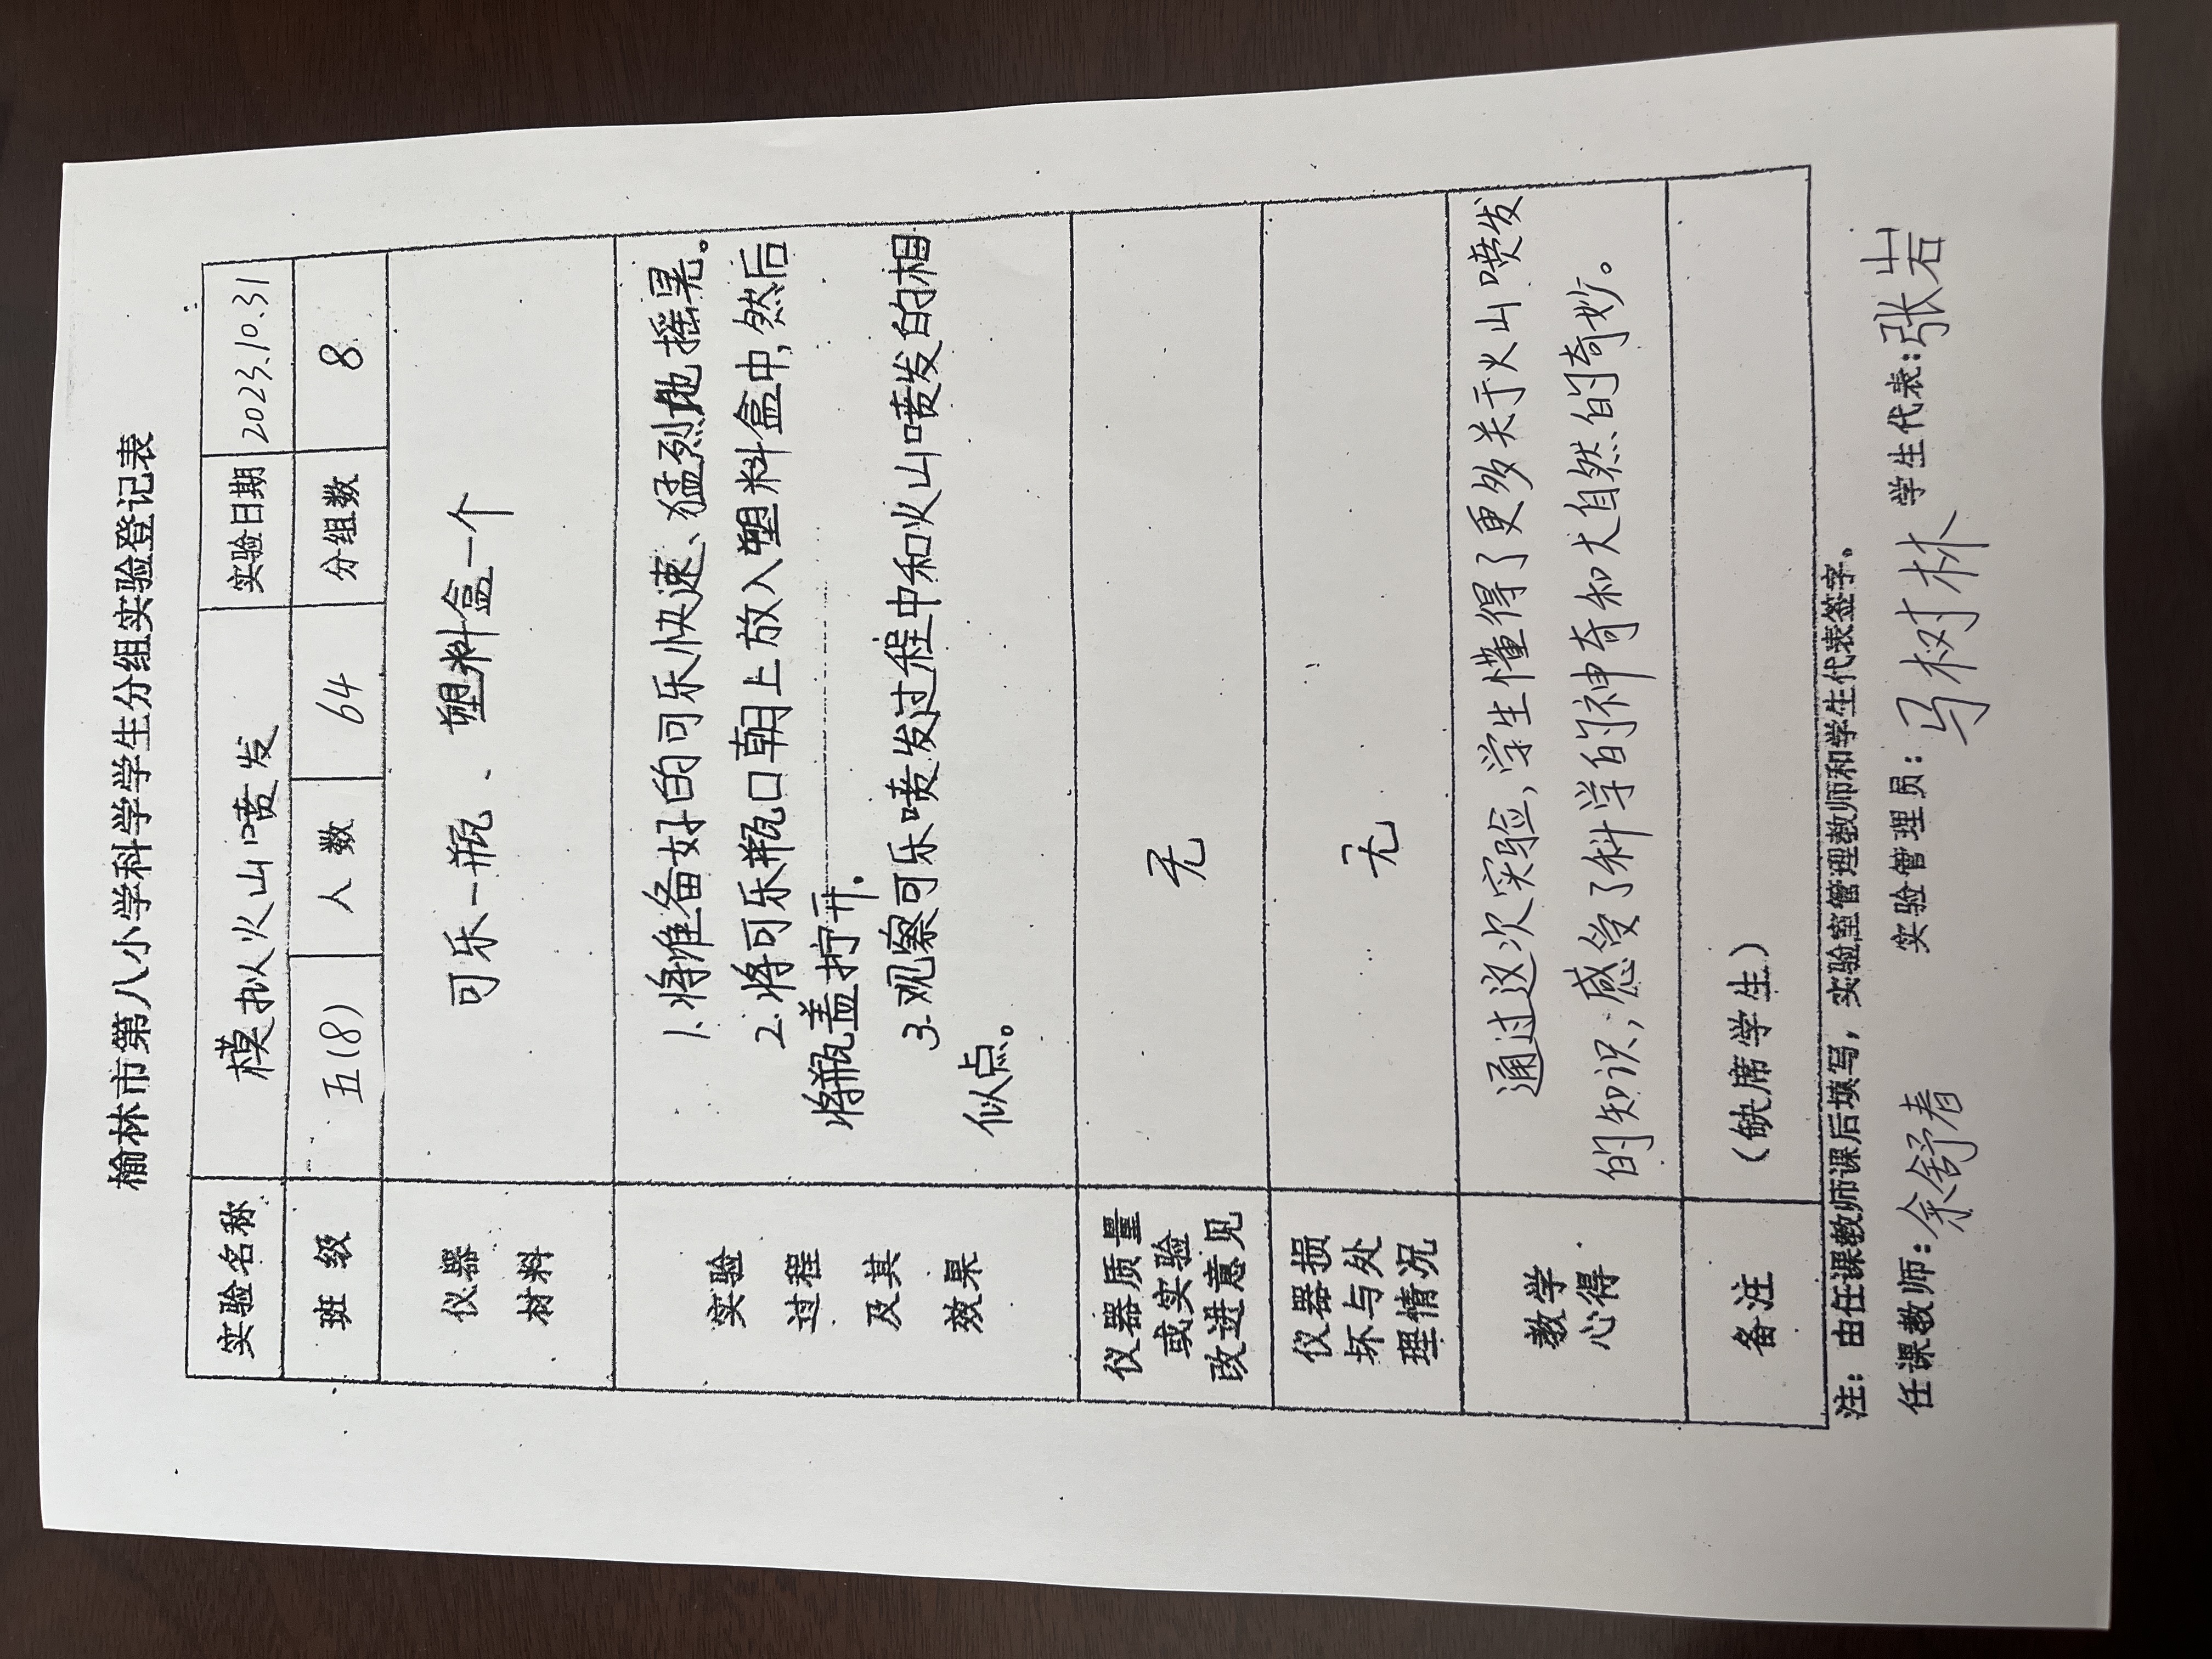 榆林市第八小学科学学生分组实验登记表
实验名称 模拟火山喷发 实验日期 2023.10.31
班 级 五(8) 人 数 64 分组数 8
仪器
材料
可乐一瓶、塑料盒一个
实验
过程
及其
效果
1.将准备好的可乐快速、猛烈地摇晃。
2.将可乐瓶口朝上放入塑料盒中,然后
将瓶盖拧开.
3.观察可乐喷发过程中和火山喷发的相
似点。
仪器质量
或实验
改进意见
无
仪器损
坏与处
理情况
无
教学
心得
通过这次实验,学生懂得了更多关于火山喷发
的知识,感受了科学的神奇和大自然的奇妙。
备注 (缺席学生)
注：由任课教师课后填写，实验室管理教师和学生代表签字。
任课教师:余舒春 实验管理员:马树林 学生代表:张岩